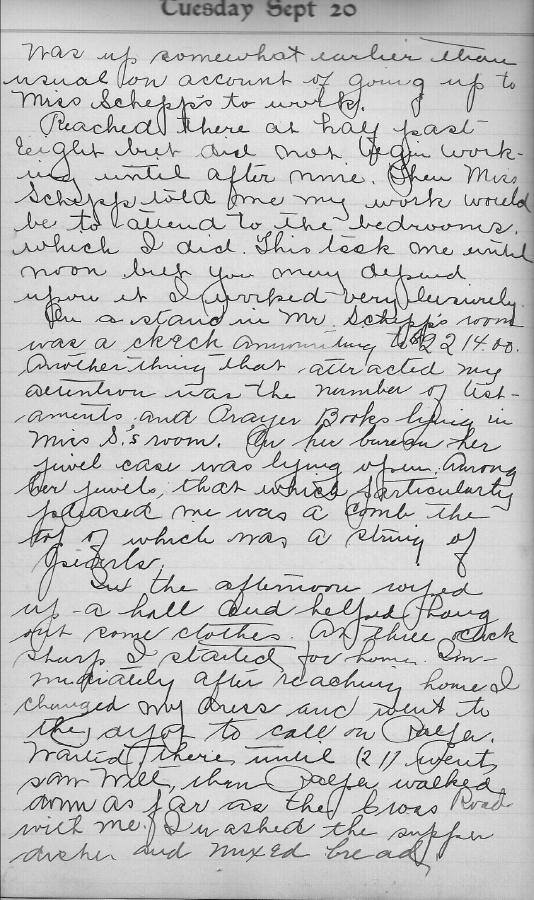 Tuesday Sept 20
Was up somewhat earlier than
usual on account of going up to
Miss Schepp's to work.
Reached there at half past
eight but did not begin work-
ing until after nine. Then Miss
Schepp told me my work would
be to attend to the bedrooms,
which I did. This took me until
noon but you may depend
upon it I worked very leisurely.
On a stand in Mr. Schepp's room
was a check amounting to $2214.00.
Another thing that attracted my
attention was the number of test-
aments and Prayer Books lying in
Miss S.'s room. On her bureau her
jewel case was lying open. Among
her jewels, that which particularly
pleased me was a comb the
top of which was a string of
pearls.
In the afternoon wiped
up a hall and helped hang
out some clothes. At three o'clock
sharp I started for home. Im-
mediately after reaching home I
changed my dress and went to
the to call on
Waited there until went,
saw Will, then walked
down as far as the Cross Road
with me. I washed the supper
dishes and mixed bread.